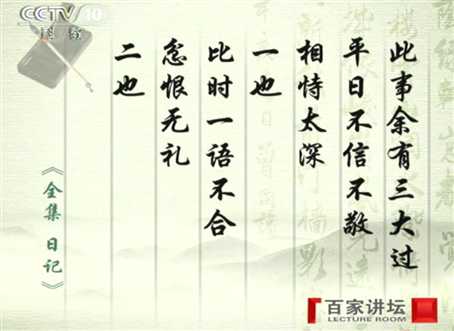 CCTV 10
此事余有三大过
平日不信不敬
相恃太深
一也
比时一语不合
忿恨无礼
二也
《全集 日记》
百家讲坛
LECTURE ROOM